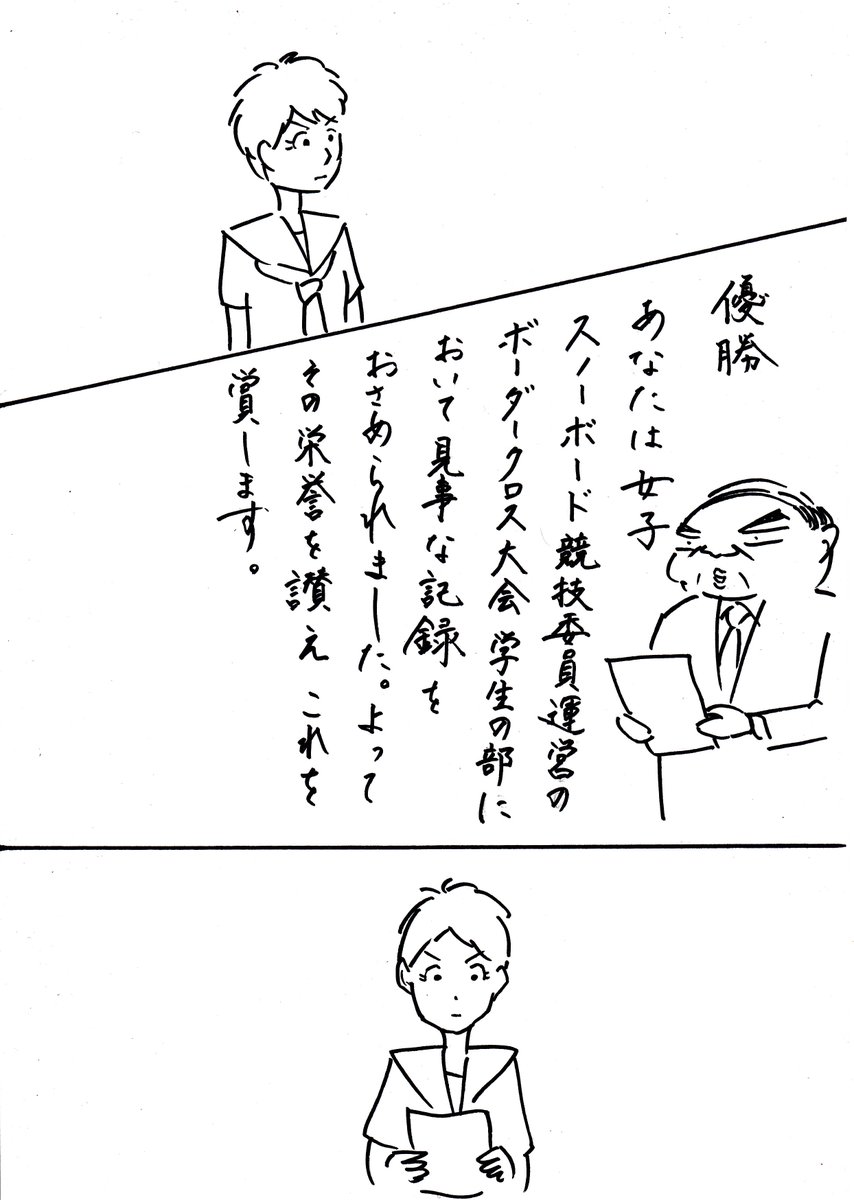 優勝
あなたは女子
スノーボード競技委員運営の
ボーダークロス大会 学生の部に
おいて見事な記録を
おさめられました。よって
その栄誉を讃え これを
賞します。